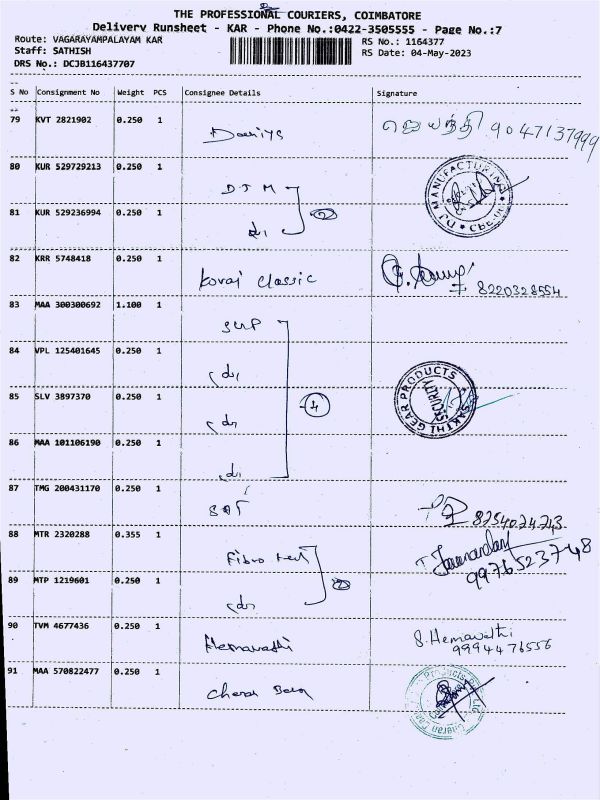 THE PROFESSIONAL COURIERS, COIMBATORE
Delivery Runsheet - KAR - Phone No.:0422-3505555 - Page No.:7
Route: VAGARAYAMPALAYAM KAR
RS No.: 1164377
Staff: SATHISH
RS Date: 04-May-2023
DRS No.: DCJB116437707
S No Consignment No Weight PCS Consignee Details Signature
79 KVT 2821902 0.250 1 ஜெயந்தி 9047137999
80 KUR 529729213 0.250 1 DJM
MANUFACTURING
81 KUR 529236994 0.250 1 do 2
82 KRR 5748418 0.250 1 Kovai classic
8220328554
83 MAA 300300692 1.100 1
84 VPL 125401645 0.250 1 do
SAKTHI GEAR PRODUCTS
SECURITY
85 SLV 3897370 0.250 1 do 4
86 MAA 101106190 0.250 1 do
87 TMG 200431170 0.250 1
8254024243
88 MTR 2320288 0.355 1 Fibro
9976523748
89 MTP 1219601 0.250 1 do 2
90 TVM 4677436 0.250 1 Hemavathi S.Hemavathi
9994476556
91 MAA 570822477 0.250 1 Cheran